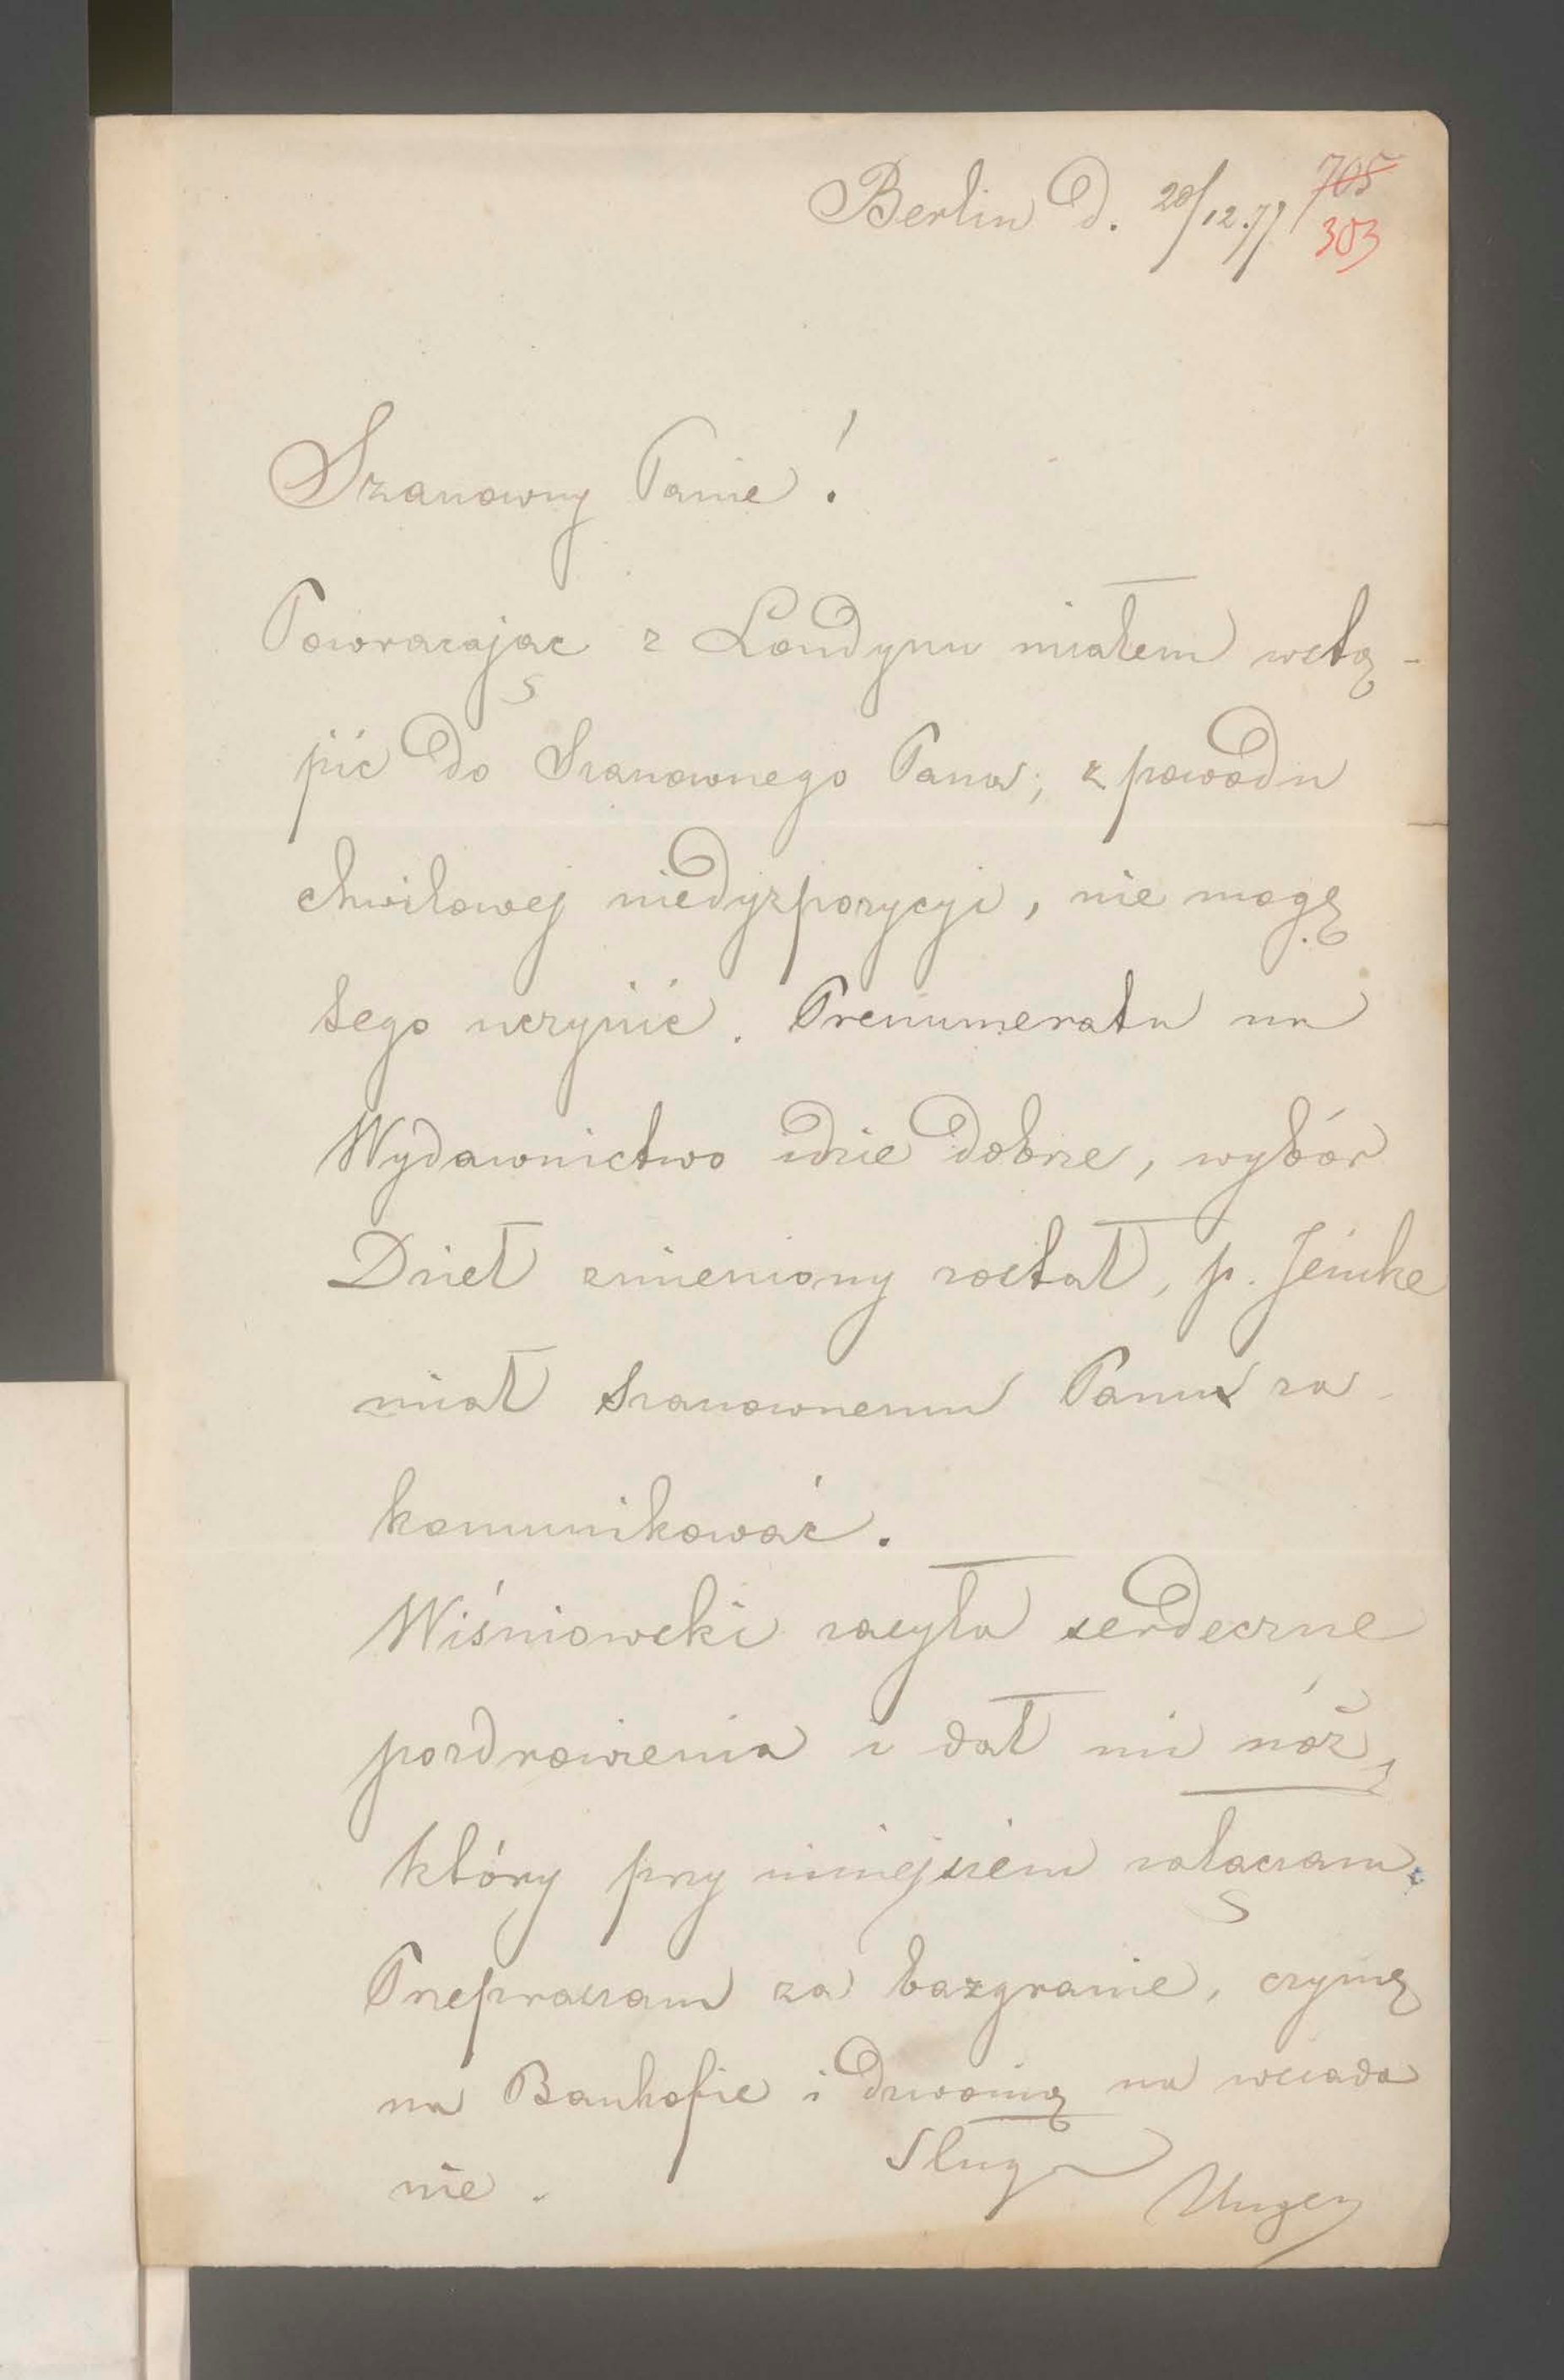 Berlin d. 20/12.77
705
303
Szanowny Panie!
Powracając z Londynu miałem wstą-
pić do Szanownego Pana; z powodu
chwilowej niedyzpozycyi, nie mogę
tego uczynić. Prenumerata na
Wydawnictwo idzie dobrze, wybór
Dzieł zmieniony został, p. Jenike
miał Szanownemu Panu za-
komunikować.
Wiśniowski zasyła serdeczne
pozdrowienia i dał mi nóż,
który przy niniejszem załączam.
Przepraszam za bazgranie, czynię
na Banhofie i dzwonią na wsiada
nie.
Sługa
Unger